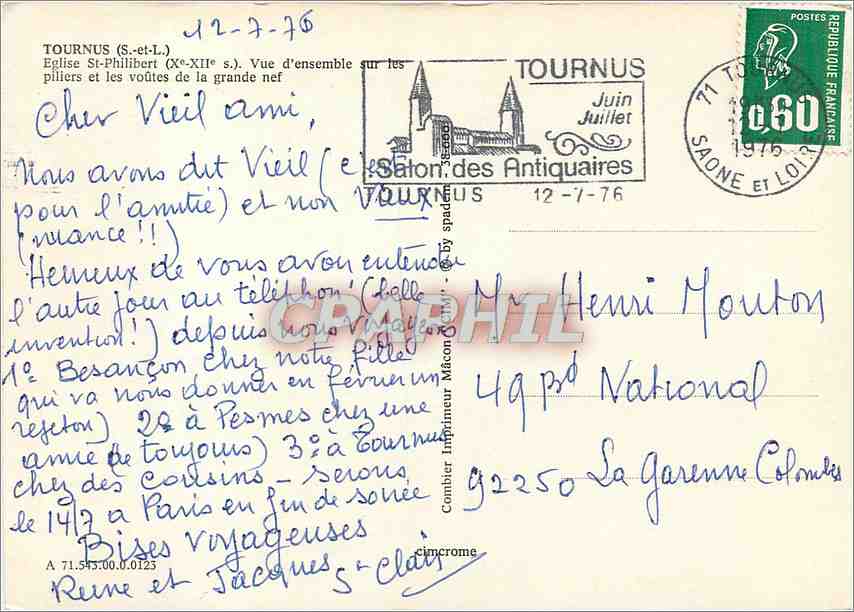 12-7-76
TOURNUS (S.-et-L.)
Eglise St-Philibert (Xe-XIIe s.). Vue d'ensemble sur les
piliers et les voûtes de la grande nef
Cher Vieil ami,
Nous avons dit Vieil (c'est
pour l'amitié) et non Vieux
(nuance !!)
Heureux de vous avoir entendu
l'autre jour au téléphon ! (belle
invention !) depuis nous voyageons
1º Besançon chez notre fille
qui va nous donner en février un
rejeton) 2º à Pesmes chez une
amie (de toujours) 3º à Tournus
chez des cousins - serons
le 14/7 à Paris en fin de soirée
Bises voyageuses
Reine et Jacques St Clair
A 71.543.00.0.0123
cimcrome
Combier Imprimeur Mâcon "CIM" - © by spadem 38.000
TOURNUS
Juin
Juillet
Salon des Antiquaires
TOURNUS 12-7-76
71 TOURNUS
1976
SAONE ET LOIRE
POSTES
REPUBLIQUE FRANÇAISE
0,60
Mr Henri Mouton
49 Bd National
92250 La Garenne Colombes
CPAPHIL